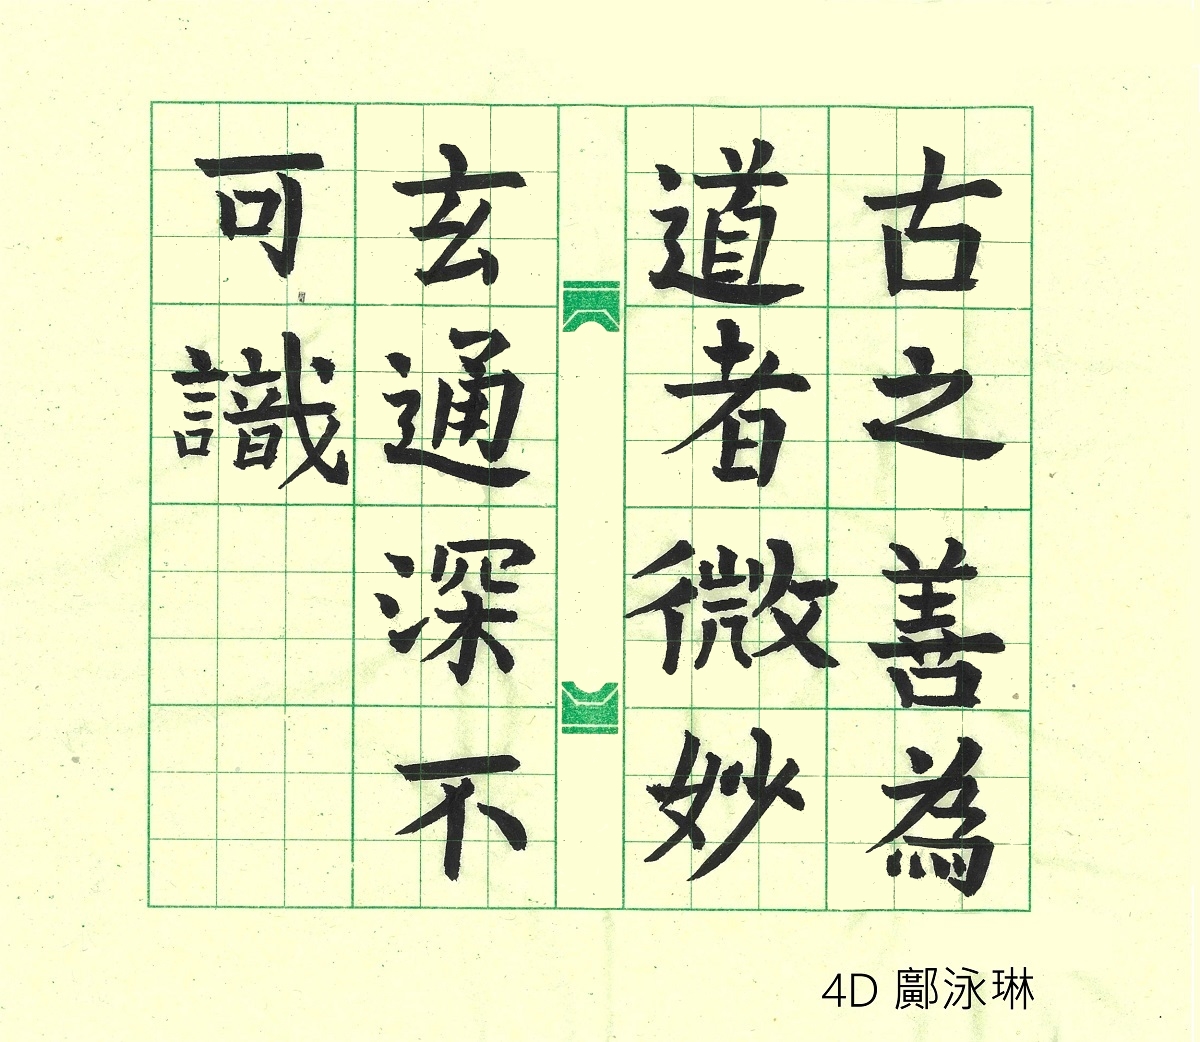 古之善為
道者微妙
玄通深不
可識
4D 鄺泳琳